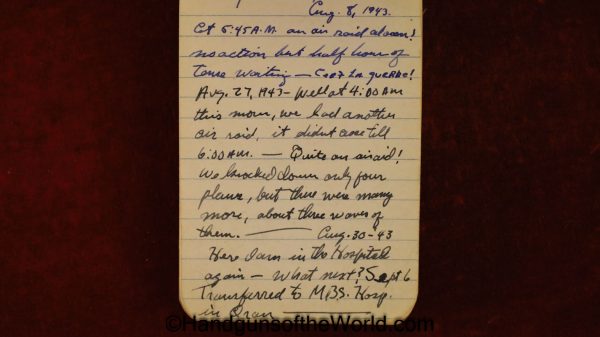 Aug. 8, 1943.
At 5:45 A.M. an air raid alarm!
no action but half hour of
tense waiting — C'est La guerre!
Aug. 27, 1943 - Well at 4:00 AM
this morn, we had another
air raid, it didnt cease till
6:00 AM. — Quite an airaid!
We knocked down only four
planes, but there were many
more, about three waves of
them. — Aug. 30-43
Here I am in the Hospital
again — What next? Sept 6
Transferred to M.B.S. Hosp.
in Oran —
©HandgunsoftheWorld.com